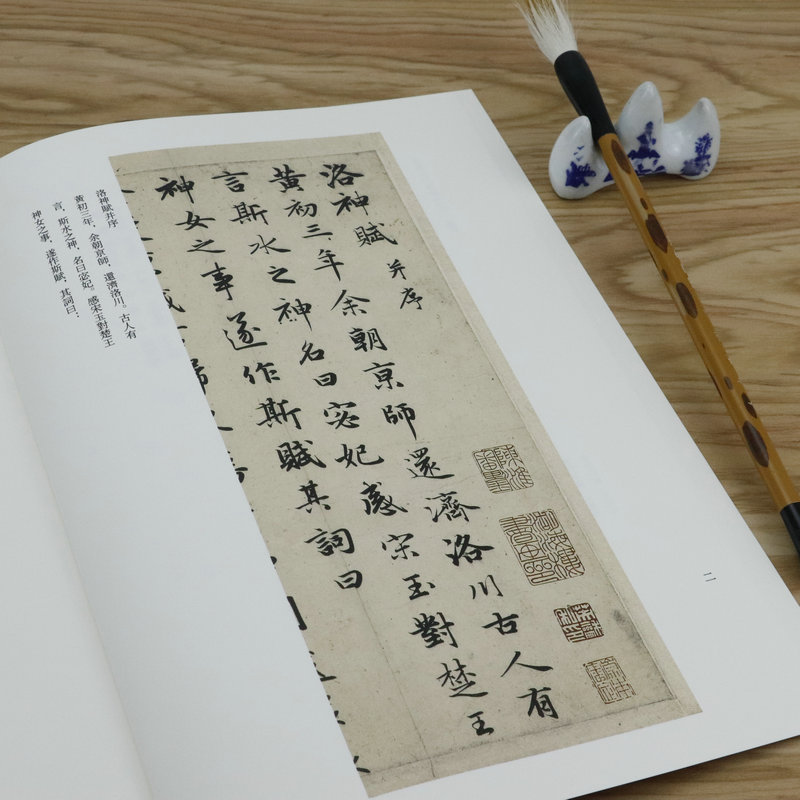 洛神賦 并序
黄初三年余朝京師還濟洛川古人有
言斯水之神名曰宓妃感宋玉對楚王
神女之事遂作斯賦其詞曰
洛神賦并序
黄初三年，余朝京師，還濟洛川。古人有
言，斯水之神，名曰宓妃。感宋玉對楚王
神女之事，遂作斯賦，其詞曰：
二